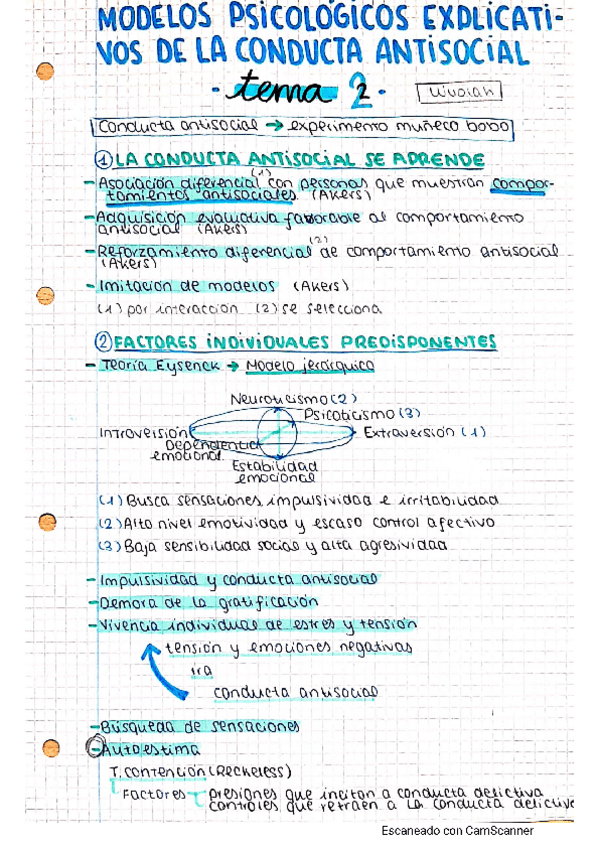 MODELOS PSICOLÓGICOS EXPLICATI-
VOS DE LA CONDUCTA ANTISOCIAL
- tema 2 -
Conducta antisocial → experimento muñeco bobo
① LA CONDUCTA ANTISOCIAL SE APRENDE
- Asociación diferencial (1) con personas que muestran compor-
tamientos antisociales. (Akers)
- Adquisición evaluativa favorable al comportamiento
antisocial (Akers)
- Reforzamiento diferencial (2) de comportamiento antisocial
(Akers)
- Imitación de modelos (Akers)
(1) por interacción (2) se selecciona
② FACTORES INDIVIDUALES PREDISPONENTES
- Teoría Eysenck → Modelo jerárquico
Neuroticismo (2)
Psicoticismo (3)
Introversión
Extraversión (1)
Dependencia
emocional
Estabilidad
emocional
(1) Busca sensaciones, impulsividad e irritabilidad
(2) Alto nivel emotividad y escaso control afectivo
(3) Baja sensibilidad social y alta agresividad
- Impulsividad y conducta antisocial
- Demora de la gratificación
- Vivencia individual de estres y tensión
tensión y emociones negativas
ira
conducta antisocial
- Búsqueda de sensaciones
- Autoestima
T. contención (Reckeless)
Factores
presiones que incitan a conducta delictiva
controles que retraen a la conducta delictive
Escaneado con CamScanner